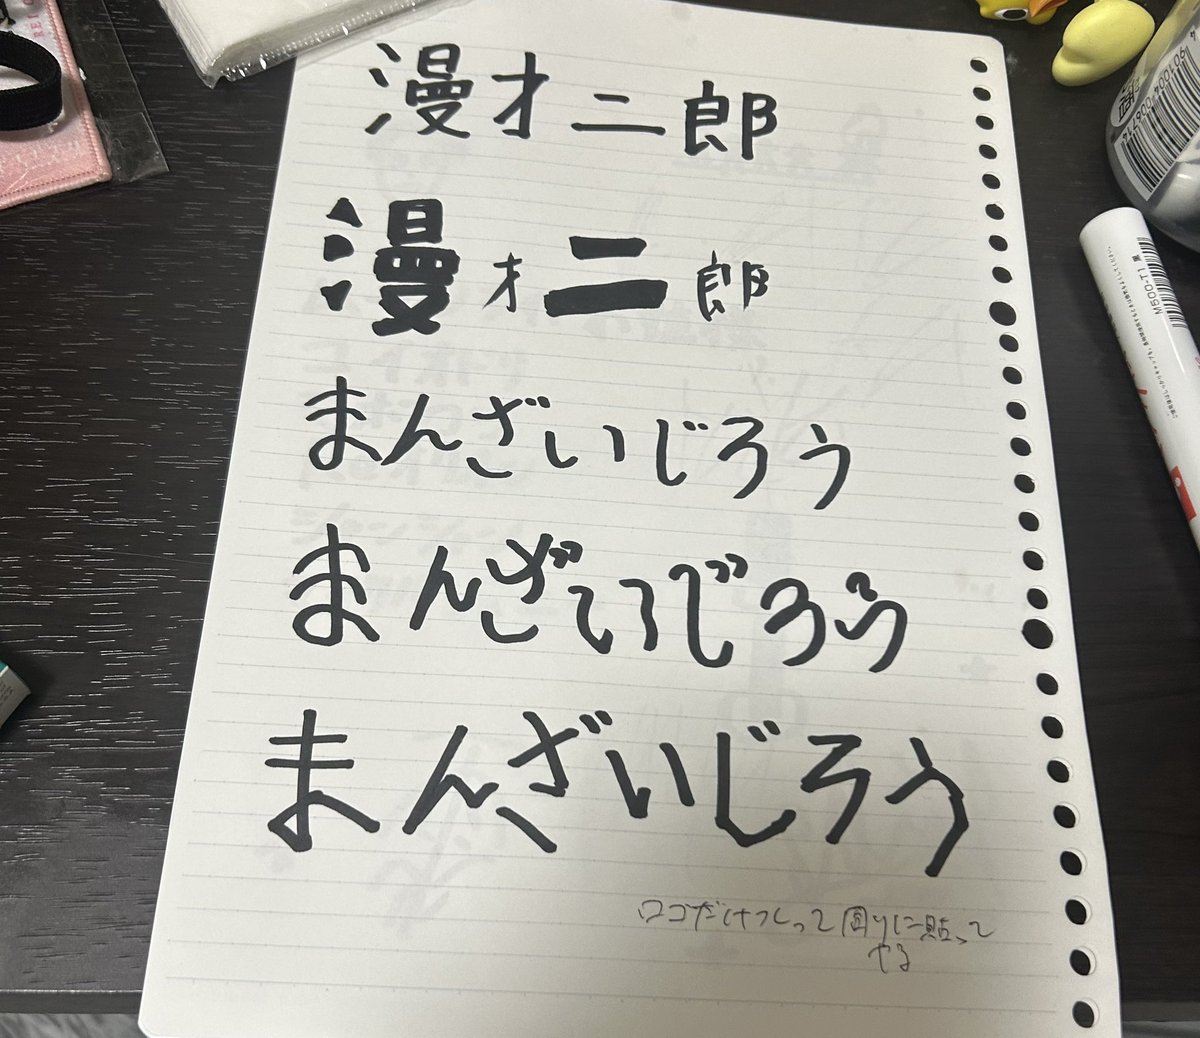 漫才二郎
漫才二郎
まんざいじろう
まんざいじろう
まんざいじろう
ロゴだけつくって周りに貼って
やる
M500-T1 黒